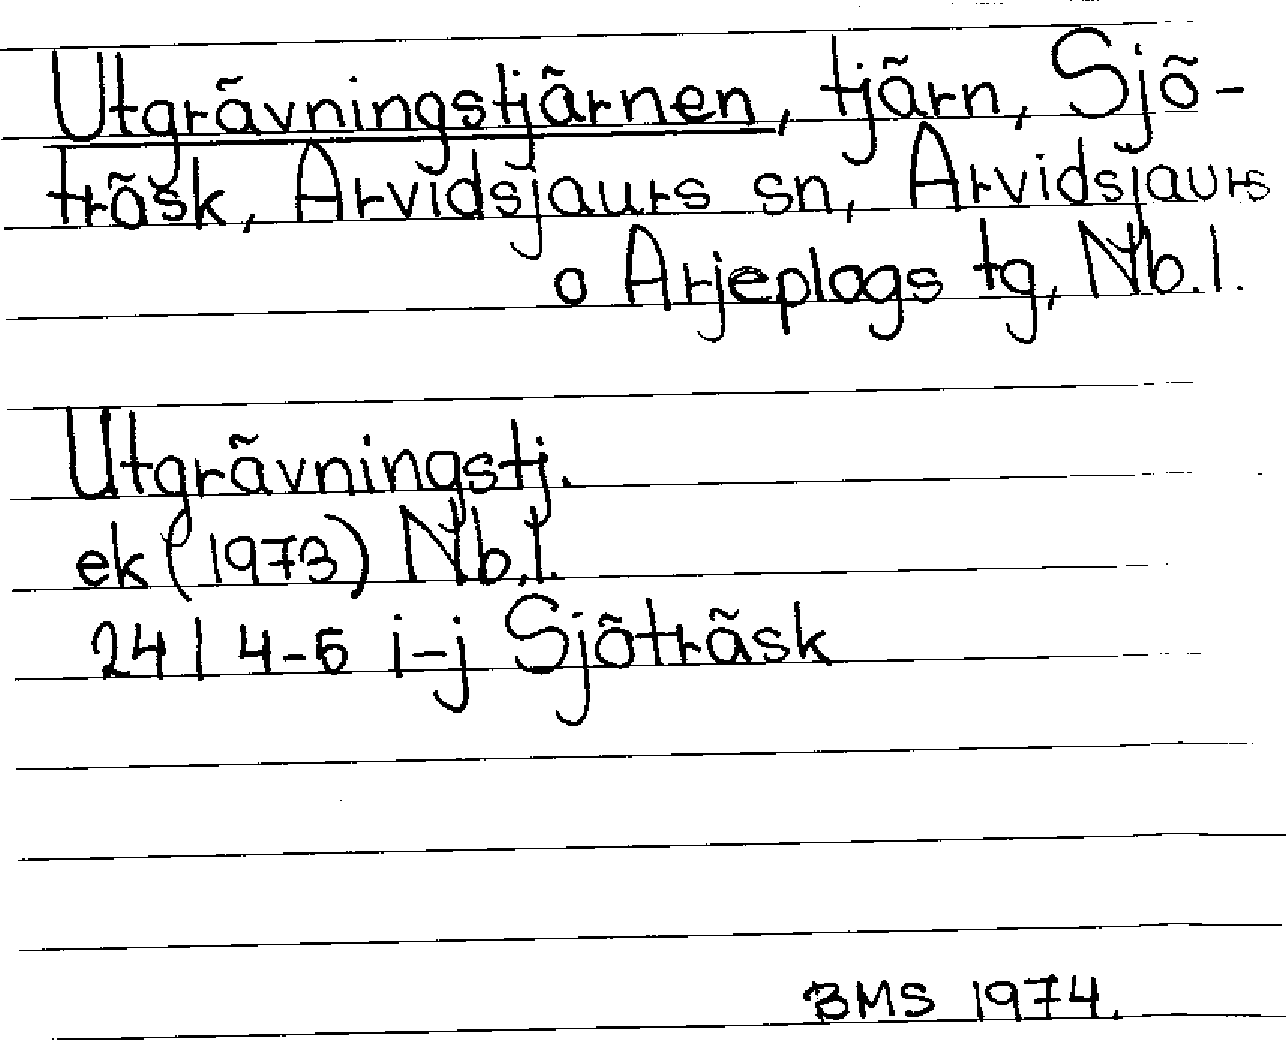 Utgrävningstjärnen, tjärn, Sjö-
träsk, Arvidsjaurs sn, Arvidsjaurs
o Arjeplogs tg, Nb.l.
Utgrävningstj.
ek (1973) Nb.l.
24 I 4-5 i-j Sjöträsk
BMS 1974.